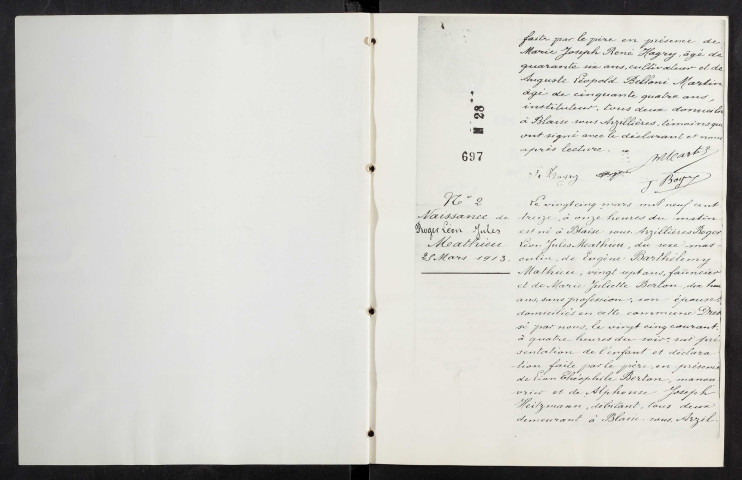 faite par le père en présence de
Marie Joseph René Hagry, âgé de
quarante un ans, cultivateur et de
Auguste Léopold Belloni Martin
âgé de cinquante quatre ans,
instituteur, tous deux domiciliés
à Blaise sous Arzillières, témoins qui
ont signé avec le déclarant et nous
après lecture.
N 28
697
N° 2
Naissance de
Roger Léon Jules
Mathieu
25 Mars 1913.
Le vingt cinq mars mil neuf cent
treize, à onze heures du matin
est né à Blaise sous Arzillières Roger
Léon Jules Mathieu, du sexe mas-
culin, de Eugène Barthélemy
Mathieu, vingt sept ans,
et de Marie Juliette Berton, dix huit
ans, sans profession, son épouse,
domiciliés en cette commune Dres-
sé par nous, le vingt cinq courant,
à quatre heures du soir, sur pré
sentation de l'enfant et déclara
tion faite par le père, en présence
de Léon Théophile Berton, manou
vrier et de Alphonse Joseph
Heitzmann, débitant, tous deux
demeurant à Blaise sous Arzil-